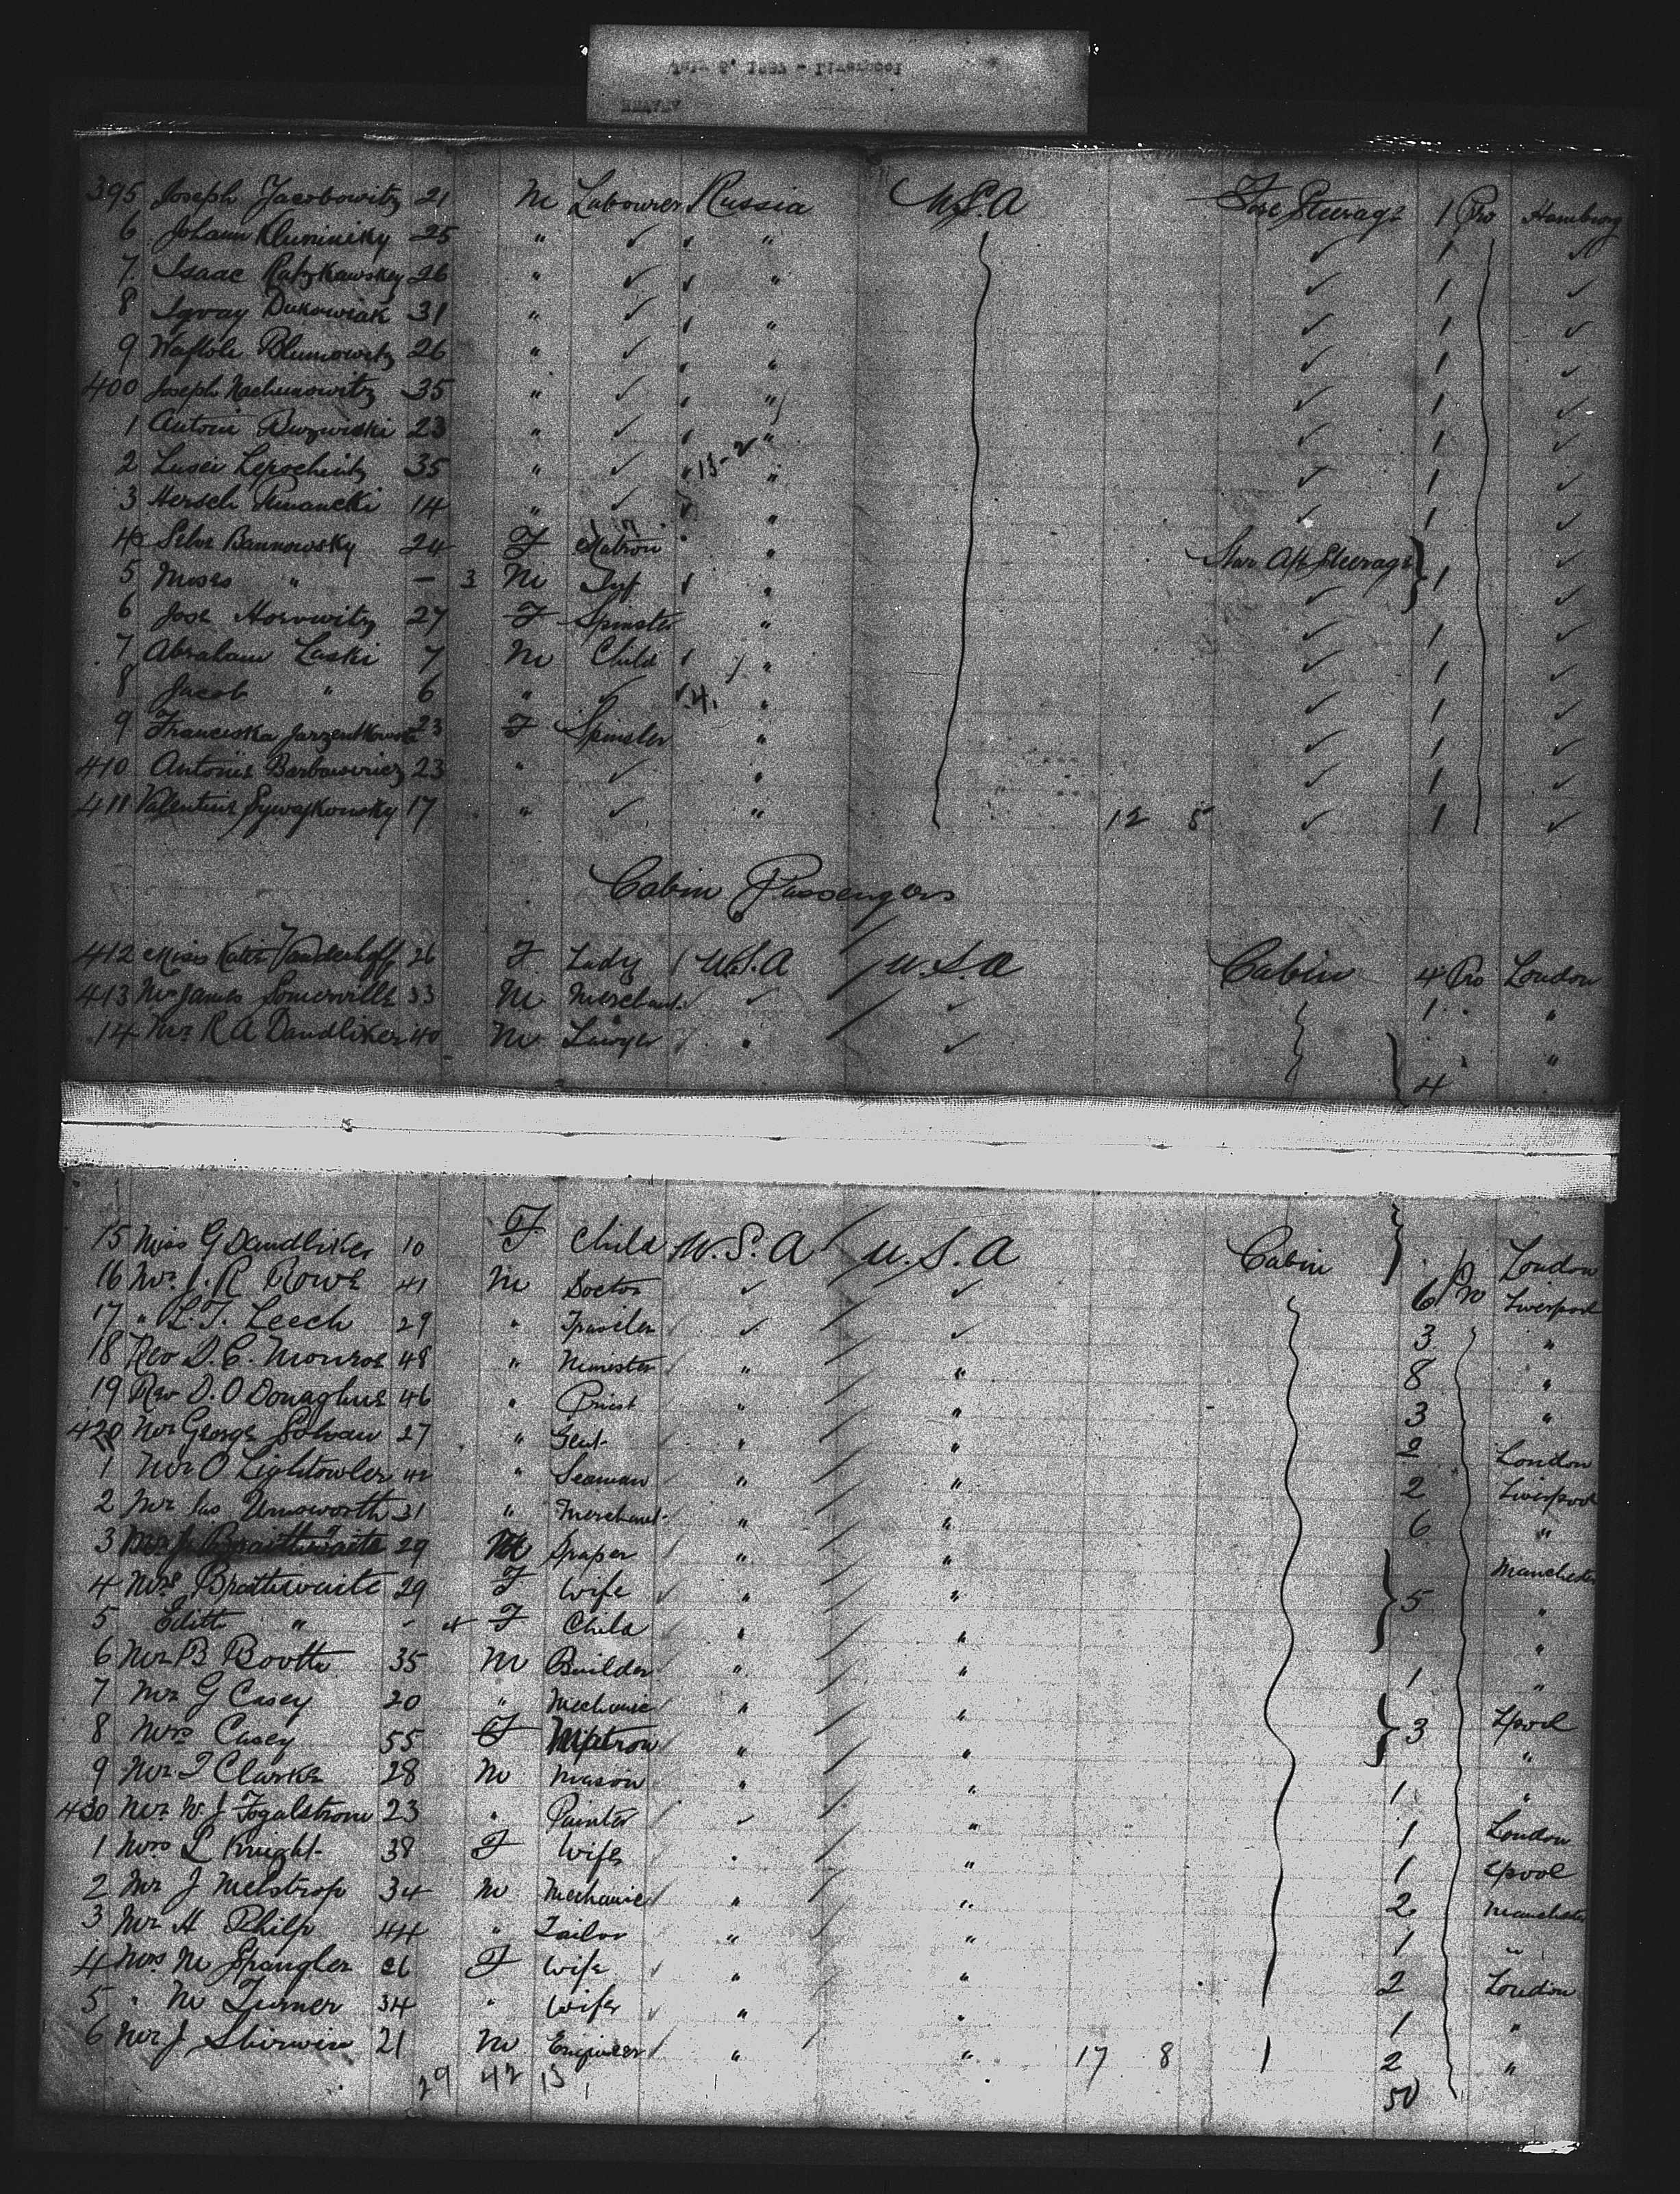 July 5, 1887 - Liverpool
395 Joseph Jacobowitz 21 M Labourer Russia U.S.A Fore Steerage 1 Pro Hamburg
6 Johann 25 " ✓ " ✓ 1 ✓
7 Isaac Ratzkawskey 26 " ✓ " ✓ 1 ✓
8 Dukowiak 31 " ✓ " ✓ 1 ✓
9 Blumowitz 26 " ✓ " ✓ 1 ✓
400 Joseph Nachumowitz 35 " ✓ " ✓ 1 ✓
1 Antoni 23 " ✓ " ✓ 1 ✓
2 Lepschitz 35 " ✓ " ✓ 1 ✓
3 Hersch 14 " ✓ " ✓ 1 ✓
4 Bannowsky 24 F Matron " Aft Steerage ✓
5 Moses " - 3 M Inf " ✓ 1 ✓
6 Horowitz 27 F Spinster " ✓ 1 ✓
7 Abraham Laski 7 M Child " ✓ 1 ✓
8 Jacob " 6 " ✓ " ✓ 1 ✓
9 Franciska 23 F Spinster " ✓ 1 ✓
410 Antonie 23 " ✓ " ✓ 1 ✓
411 Valentine 17 " ✓ " 12 5 ✓ 1 ✓
Cabin Passengers
412 Miss Katie Vanderhoff 26 F Lady U.S.A U.S.A Cabin 4 Pro London
413 Mr James Somerville 33 M Merchant ✓ ✓ 1 "
14 Mr R A Dandliker 40 M Lawyer " ✓ 4 "
15 Miss G Dandliker 10 F Child U.S.A U.S.A Cabin London
16 Mr J. R Rowe 41 M Doctor ✓ ✓ 6 Pro Liverpool
17 " L. T. Leech 29 " ✓ ✓ 3 "
18 Rev D. C. Monroe 48 " Minister " " 8 "
19 Rev D. O Donaghue 46 " Priest " " 3 "
420 Mr George 27 " Gent " " 2 London
1 Mr O Lightowler 42 " Seaman " " 2 Liverpool
2 Mr Jas Unsworth 31 " Merchant " " 6 "
3 Mr J Braithwaite 29 M Draper " " Manchester
4 Mrs Braithwaite 29 F Wife " " 5 "
5 Edith " - 4 F Child " " "
6 Mr B Booth 35 M Builder " " 1 "
7 Mr G Casey 20 " Mechanic " " L'pool
8 Mrs Casey 55 F Matron " " 3 "
9 Mr T Clarke 28 M Mason " " 1 "
430 Mr W. J Fogalstrom 23 " Painter ✓ " 1 London
1 Mrs L Knight 38 F Wife " " 1 L'pool
2 Mr J Melstrop 34 M Mechanic " " 2 Manchester
3 Mr H Philp 44 " Tailor " " 1 "
4 Mrs M Spangler 26 F Wife " " 2 London
5 " M Turner 34 " Wife " " 1 "
6 Mr J Sherwin 21 M Engineer " " 17 8 1 2 "
29 42 13 50